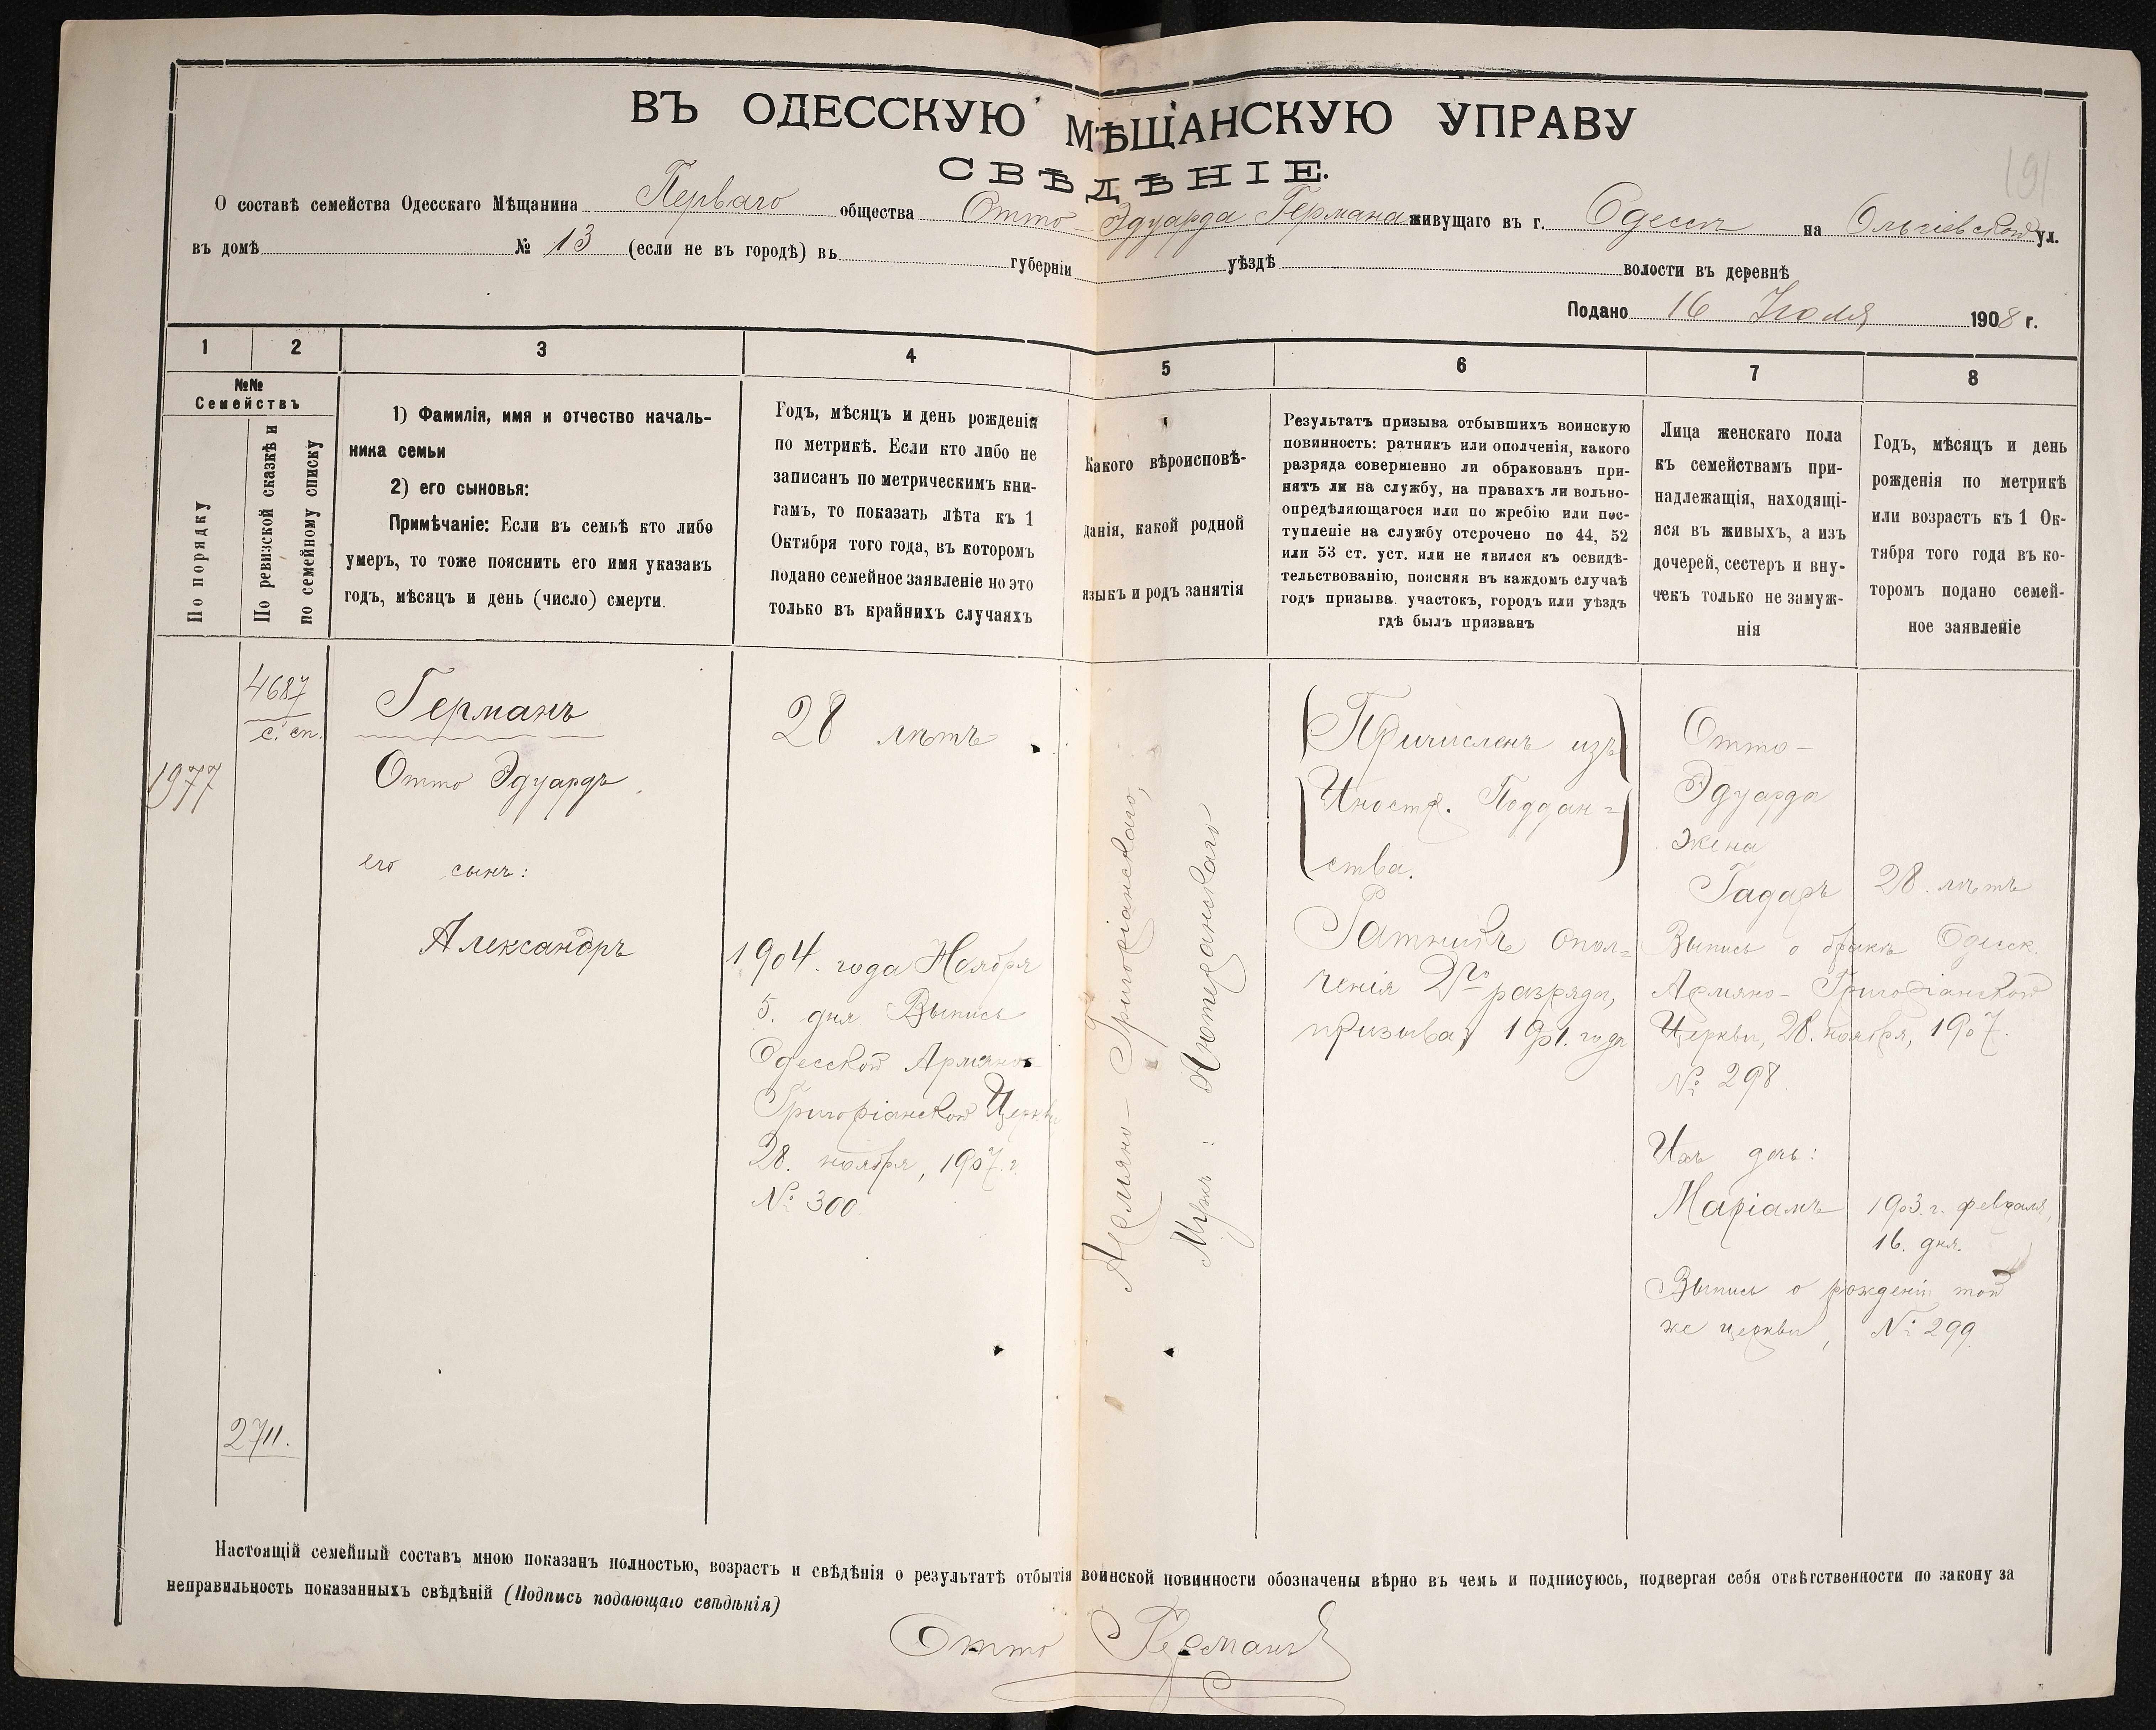 ВЪ ОДЕССКУЮ МѢЩАНСКУЮ УПРАВУ
СВѢДѢНІЕ.
191
О составѣ семейства Одесскаго Мѣщанина Перваго общества Отто-Эдуарда Германа живущаго въ г. Одессѣ на Ольгіевской ул.
въ домѣ № 13 (если не въ городѣ) въ губерніи уѣздѣ волости въ деревнѣ
Подано 16 Іюля 1908 г.
1 2 3 4 5 6 7 8
№№
Семействъ
По порядку
По ревизской сказкѣ и
по семейному списку
1) Фамилія, имя и отчество началь-
ника семьи
2) его сыновья:
Примѣчаніе: Если въ семьѣ кто либо
умеръ, то тоже пояснить его имя указавъ
годъ, мѣсяцъ и день (число) смерти.
Годъ, мѣсяцъ и день рожденія
по метрикѣ. Если кто либо не
записанъ по метрическимъ кни-
гамъ, то показать лѣта къ 1
Октября того года, въ которомъ
подано семейное заявленіе но это
только въ крайнихъ случаяхъ
Какого вѣроисповѣ-
данія, какой родной
языкъ и родъ занятія
Результатъ призыва отбывшихъ воинскую
повинность: ратникъ или ополченія, какого
разряда совершенно ли обракованъ при-
нятъ ли на службу, на правахъ ли вольно-
опредѣляющагося или по жребію или пос-
тупленіе на службу отсрочено по 44, 52
или 53 ст. уст. или не явился къ освидѣ-
тельствованію, поясняя въ каждомъ случаѣ
годъ призыва. участокъ, городъ или уѣздъ
гдѣ былъ призванъ
Лица женскаго пола
къ семействамъ при-
надлежащія, находящі-
яся въ живыхъ, а изъ
дочерей, сестеръ и вну-
чекъ только не замуж-
нія
Годъ, мѣсяцъ и день
рожденія по метрикѣ
или возрастъ къ 1 Ок-
тября того года въ ко-
торомъ подано семей-
ное заявленіе
1977
4687
с. сп.
2711.
Германъ
Отто Эдуардъ
его сынъ:
Александръ
28 лѣтъ
1904. года Ноября
5. дня. Выпись
Одесской Армяно-
Григоріанской Церкви
28. ноября, 1907. г.
№ 300.
Армяно-Григоріанскаго,
Мужъ: Лютеранскаго
Причисленъ изъ
Иностр. Поддан=
ства.
Ратникъ опол=
ченія 2го разряда,
призыва 1901. года
Отто-
Эдуарда
жена
Гадаръ 28. лѣтъ
Выпись о бракѣ Одесск.
Армяно-Григоріанской
Церкви, 28. ноября, 1907.
№ 298.
Ихъ дочь:
Маріамъ 1903. г. февраля,
16. дня.
Выпись о рожденіи той
же церкви, № 299.
Настоящій семейный составъ мною показанъ полностью, возрастъ и свѣдѣнія о результатѣ отбытія воинской повинности обозначены вѣрно въ чемъ и подписуюсь, подвергая себя отвѣтственности по закону за
неправильность показанныхъ свѣдѣній (Подпись подающаго свѣдѣнія)
Отто Германъ